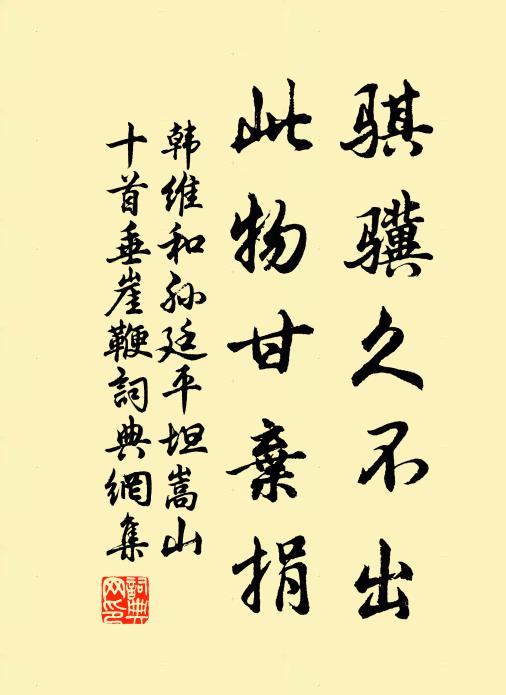 骐骥久不出
此物甘棄捐
韩维和孙廷平坦嵩山
十首垂崖鞭詞典網集
詞典